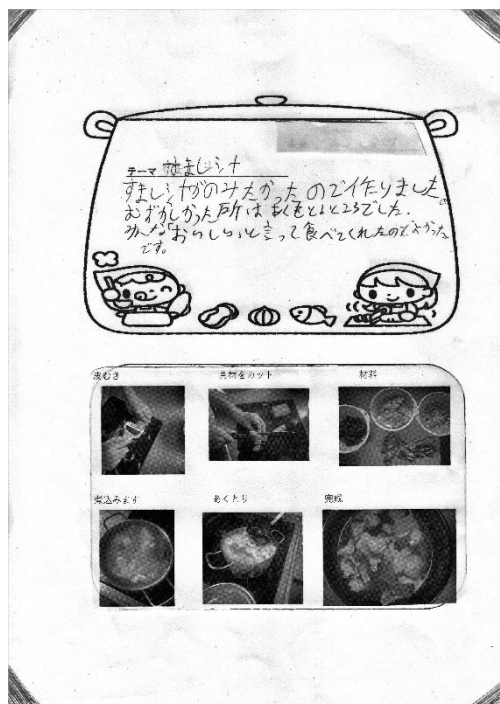 テーマ すまし汁
すまし汁がのみたかったので作りました。
むずかしかった所はあくをとるところでした.
みんな「おいしい」と言って食べてくれたのでよかった
です。
皮むき 具材をカット 材料
煮込みます あくとり 完成